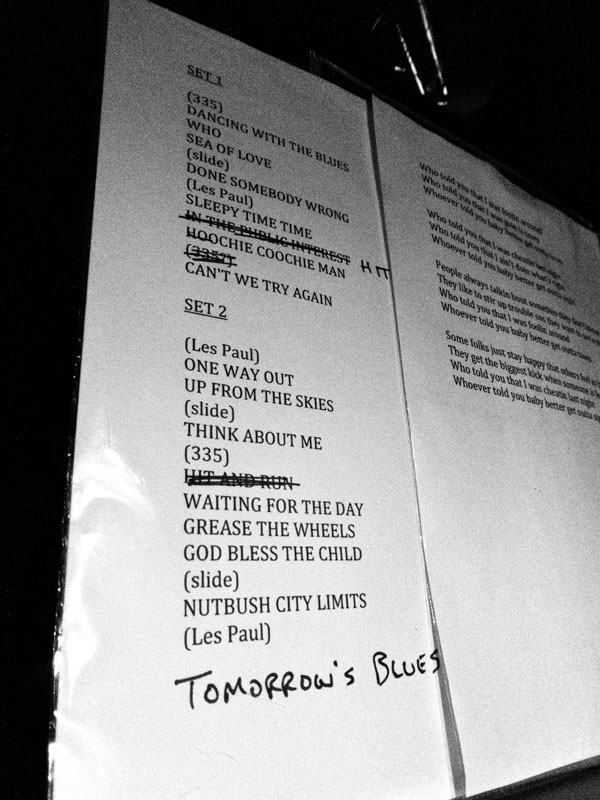 SET 1
(335)
DANCING WITH THE BLUES
WHO
SEA OF LOVE
(slide)
DONE SOMEBODY WRONG
(Les Paul)
SLEEPY TIME TIME
IN THE PUBLIC INTEREST
HOOCHIE COOCHIE MAN
(335?)
CAN'T WE TRY AGAIN
SET 2
(Les Paul)
ONE WAY OUT
UP FROM THE SKIES
(slide)
THINK ABOUT ME
(335)
HIT AND RUN
WAITING FOR THE DAY
GREASE THE WHEELS
GOD BLESS THE CHILD
(slide)
NUTBUSH CITY LIMITS
(Les Paul)
TOMORROW'S BLUES
Who told you that I was foolin around
Who told you that I was
Whoever told you baby better get outta town
Who told you that I was cheatin last night
Who told you that I ain't doin what's right
Whoever told you baby better get outta sight
People always talkin bout somethin they don't
They like to stir up trouble cos they
Who told you that I was foolin around
Whoever told you baby better get outta town
Some folks just stay happy that others feel
They get the biggest kick when someone
Who told you that I was cheatin last night
Whoever told you baby better get outta